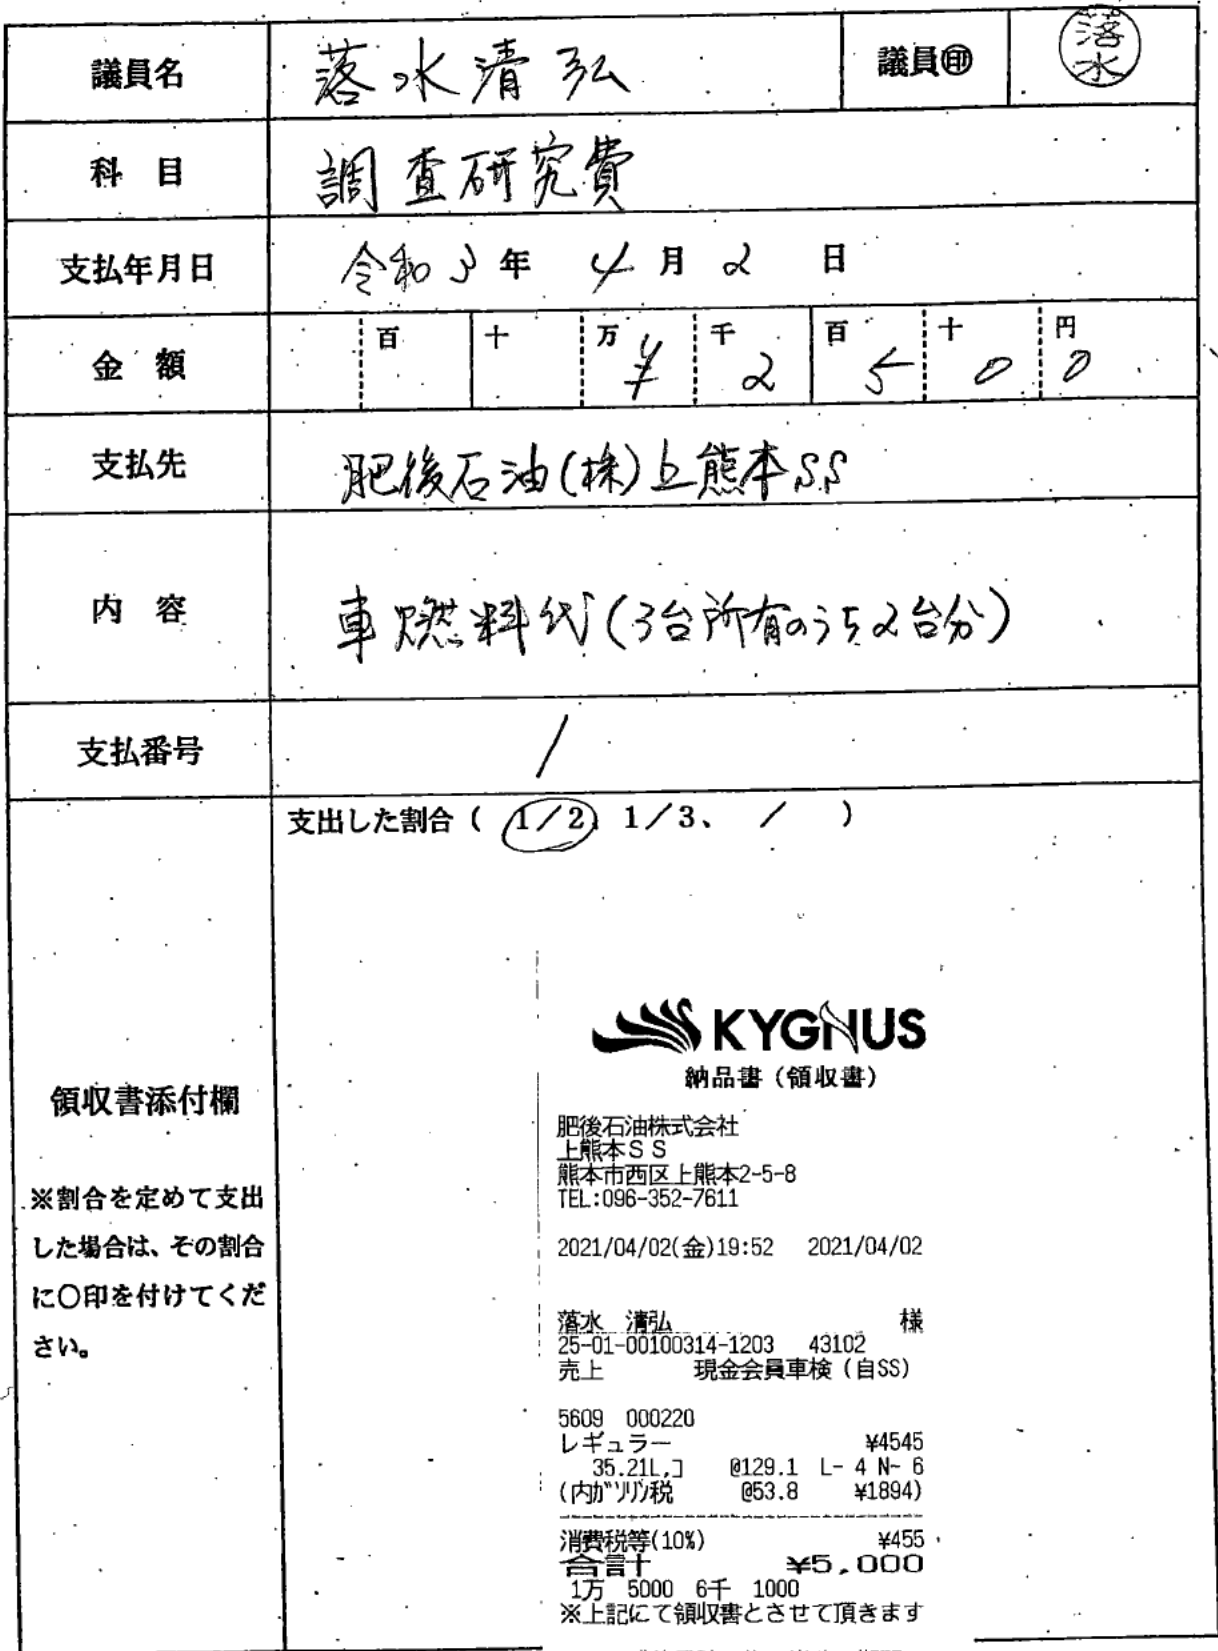 議員名 落水清弘 議員㊞ 落水
科 目 調査研究費
支払年月日 令和3年 4月2日
金 額 百 十 万¥ 千2 百5 十0 円0
支払先 肥後石油(株)上熊本SS
内 容 車燃料代(3台所有のうち2台分)
支払番号 1
支出した割合( 1/2、1/3、 / )
領収書添付欄
※割合を定めて支出
した場合は、その割合
に〇印を付けてくだ
さい。
KYGNUS
納品書(領収書)
肥後石油株式会社
上熊本SS
熊本市西区上熊本2-5-8
TEL:096-352-7611
2021/04/02(金)19:52 2021/04/02
落水 清弘 様
25-01-00100314-1203 43102
売上 現金会員車検(自SS)
5609 000220
レギュラー ¥4545
35.21L,コ @129.1 L- 4 N- 6
(内ガソリン税 @53.8 ¥1894)
消費税等(10%) ¥455
合計 ¥5,000
1万 5000 6千 1000
※上記にて領収書とさせて頂きます